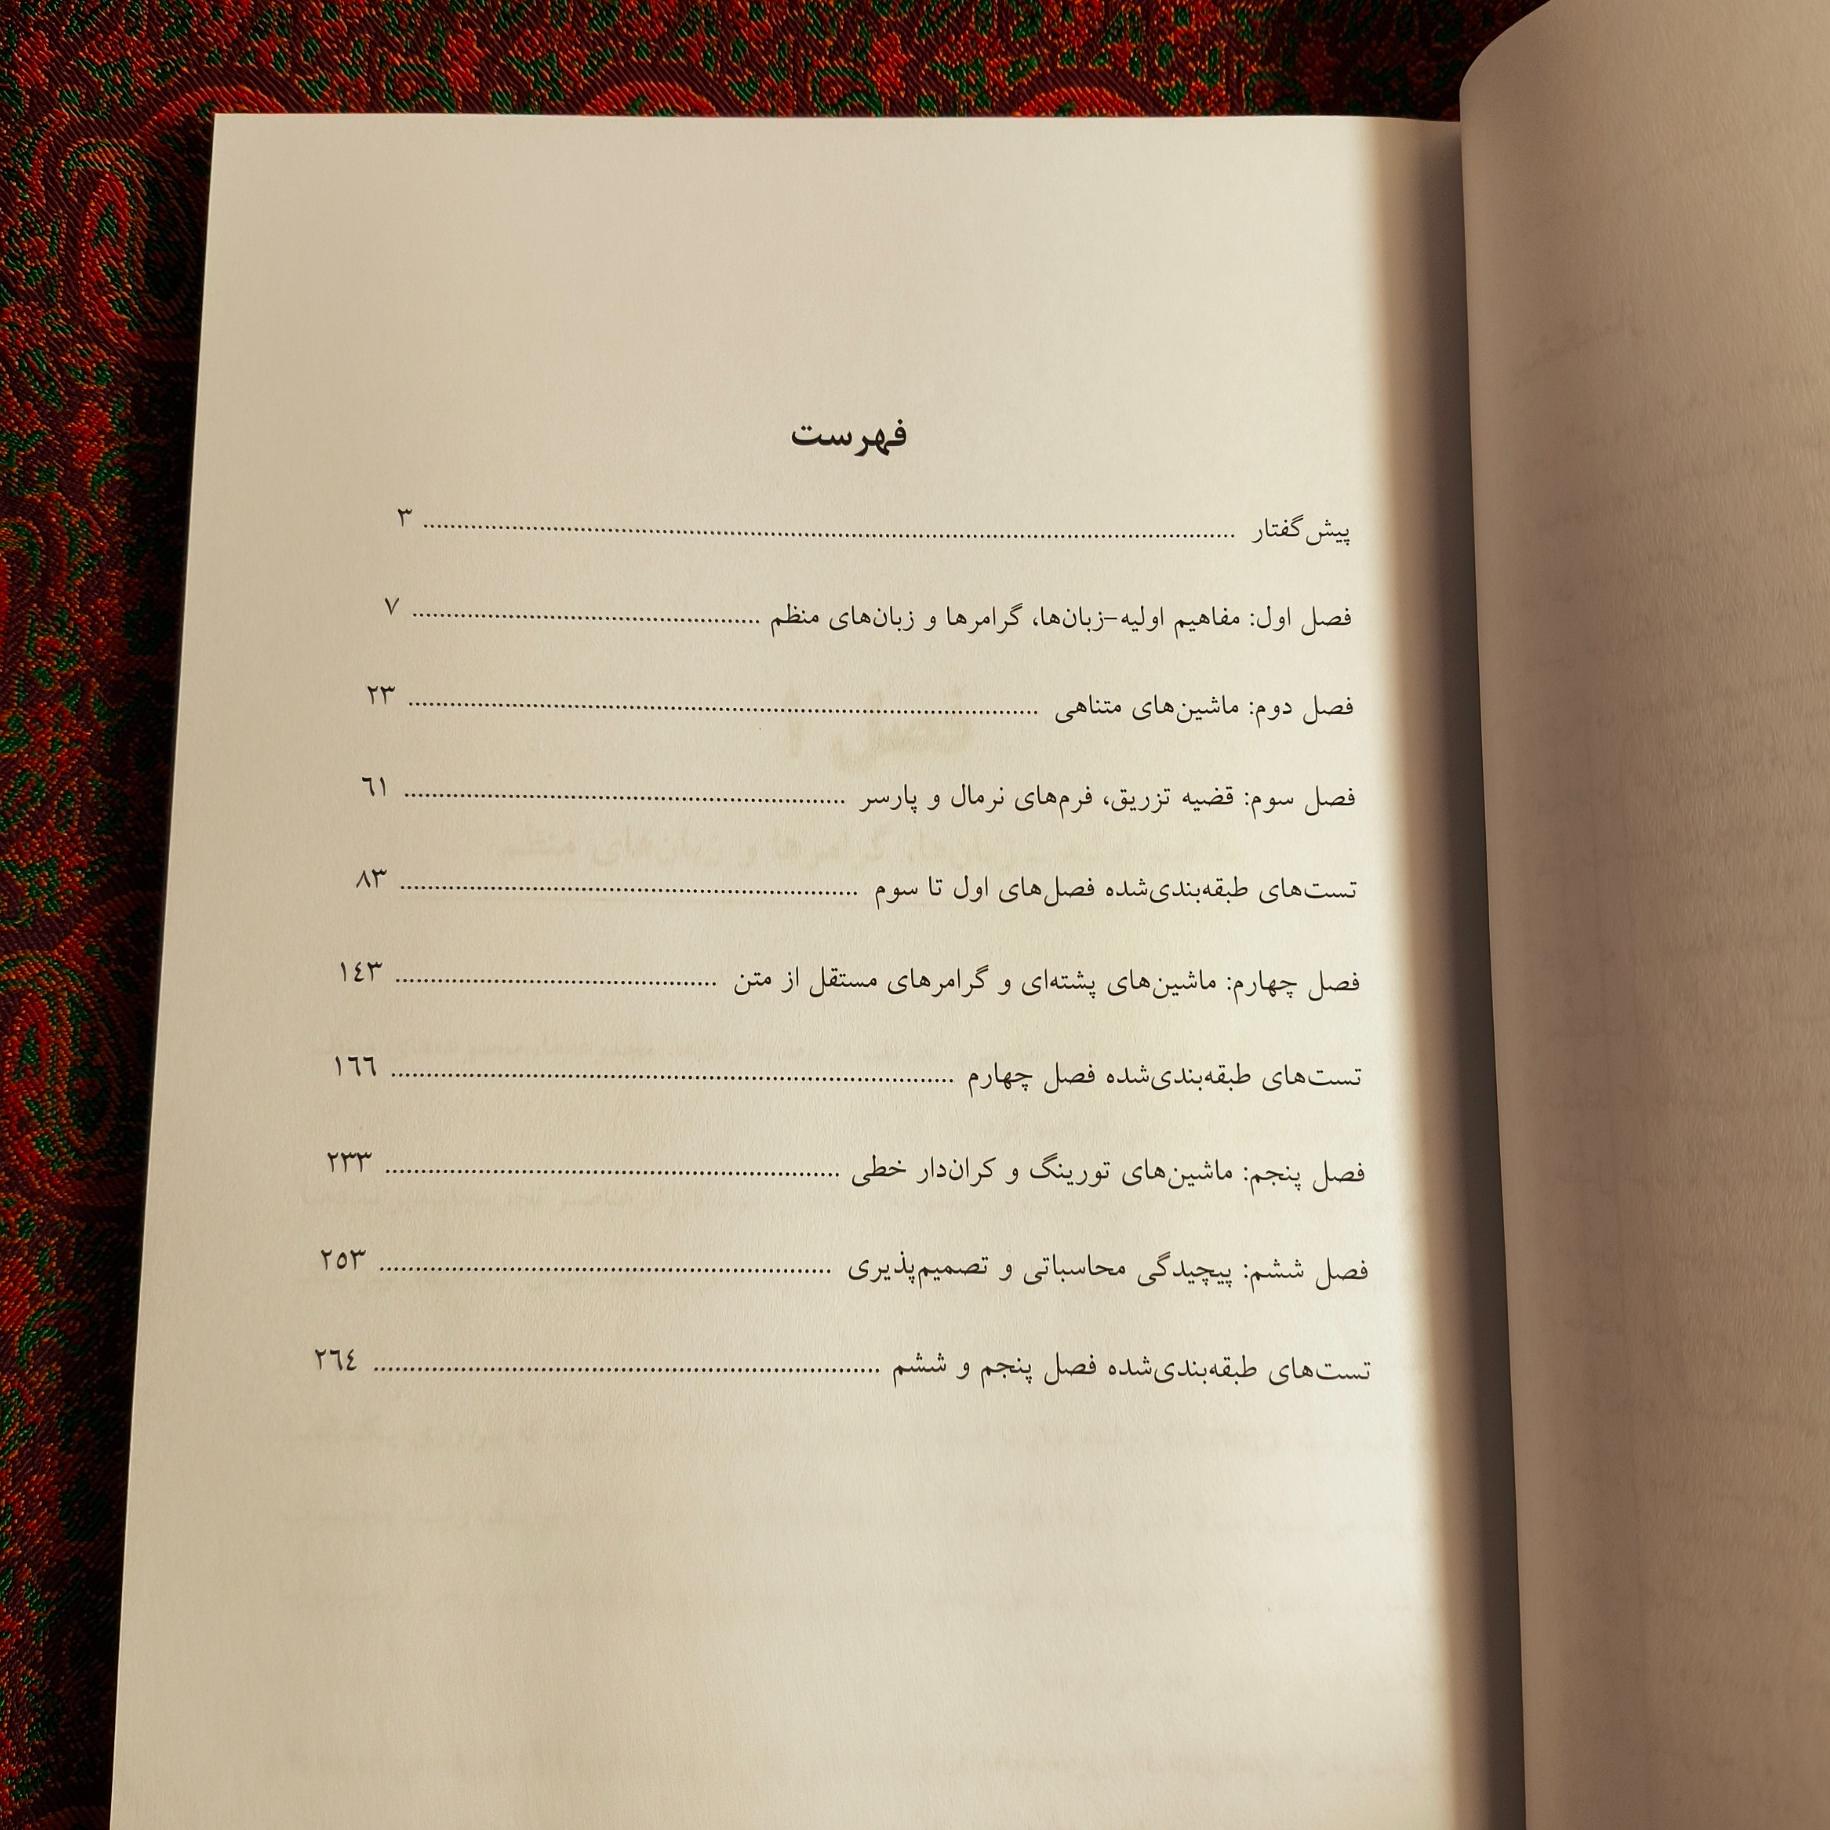 فهرست
پیش‌گفتار ........ ۳
فصل اول: مفاهیم اولیه-زبان‌ها، گرامرها و زبان‌های منظم ........ ۷
فصل دوم: ماشین‌های متناهی ........ ۲۳
فصل سوم: قضیه تزریق، فرم‌های نرمال و پارسر ........ ٦۱
تست‌های طبقه‌بندی‌شده فصل‌های اول تا سوم ........ ۸۳
فصل چهارم: ماشین‌های پشته‌ای و گرامرهای مستقل از متن ........ ۱٤۳
تست‌های طبقه‌بندی‌شده فصل چهارم ........ ۱٦٦
فصل پنجم: ماشین‌های تورینگ و کران‌دار خطی ........ ۲۳۳
فصل ششم: پیچیدگی محاسباتی و تصمیم‌پذیری ........ ۲٥۳
تست‌های طبقه‌بندی‌شده فصل پنجم و ششم ........ ۲٦٤